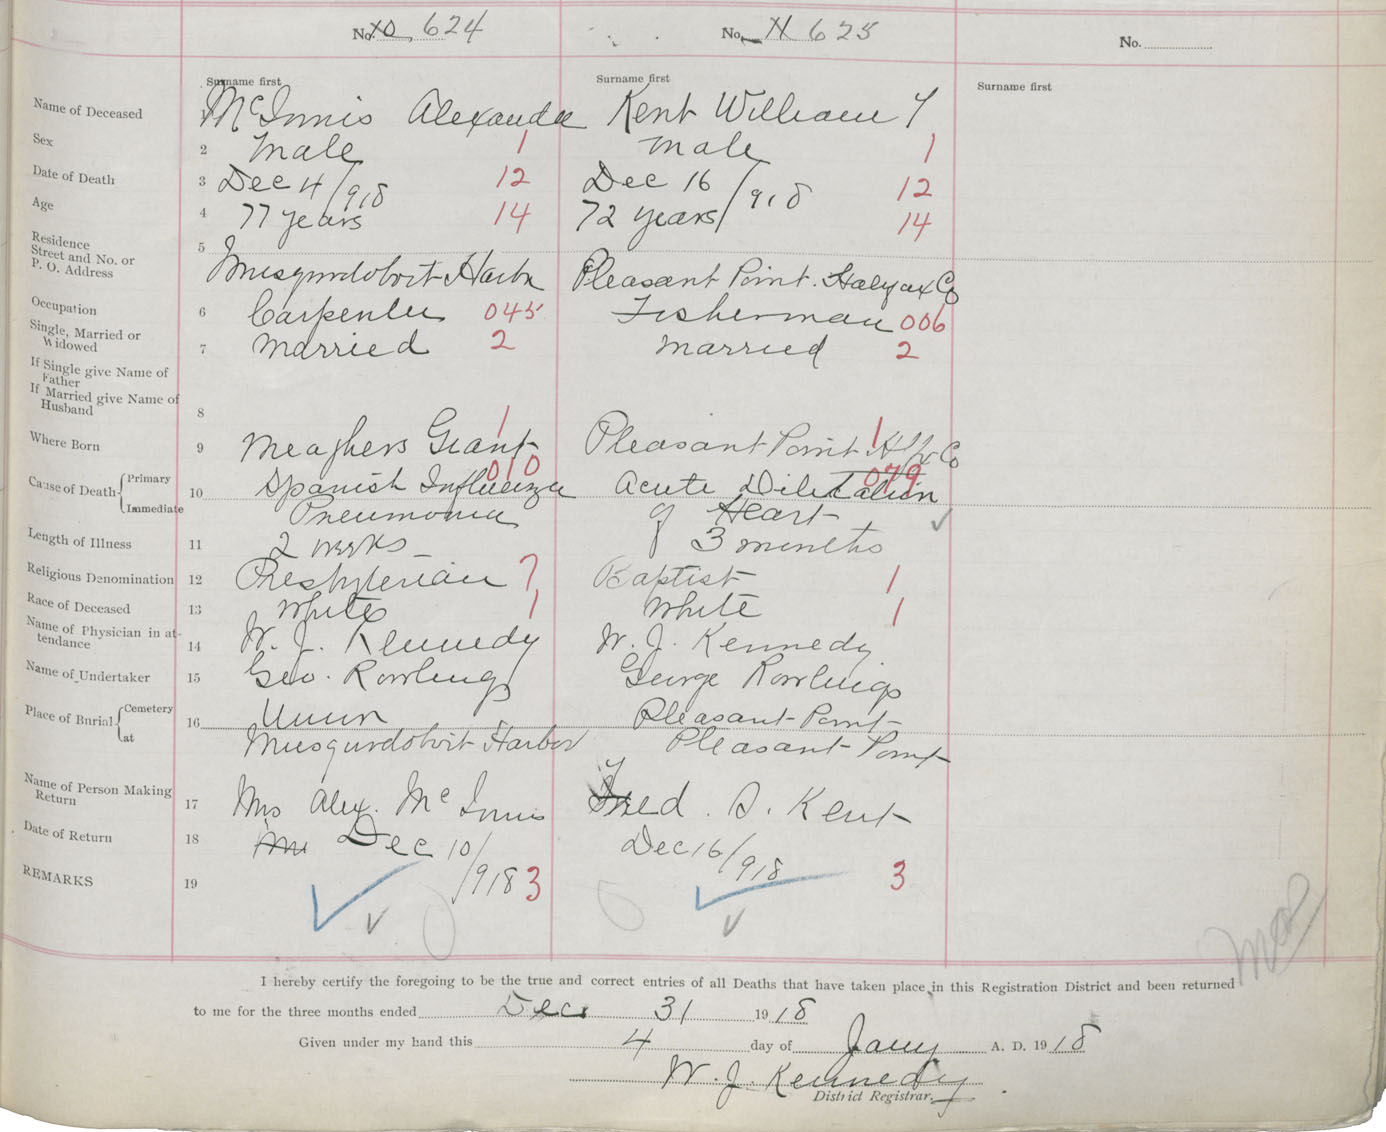 No. 624
No. 625
No.
Surname first
Surname first
Surname first
Name of Deceased 1 McInnis Alexander Kent William Y
Sex 2 Male 1 Male 1
Date of Death 3 Dec 4/918 12 Dec 16/918 12
Age 4 77 years 14 72 years 14
Residence
Street and No. or
P. O. Address 5 Musqurdoboit Harbor Pleasant Point. Halifax Co
Occupation 6 Carpenter 045 Fisherman 006
Single, Married or
Widowed 7 Married 2 Married 2
If Single give Name of
Father
If Married give Name of
Husband 8
1 1
Where Born 9 Meaghers Grant Pleasant Point Hfx Co
010 079
Cause of Death Primary 10 Spanish Influenza Acute Dilitation
Immediate Pneumonia of Heart
Length of Illness 11 2 weeks 3 months
Religious Denomination 12 Presbyterian 7 Baptist 1
Race of Deceased 13 White 1 White 1
Name of Physician in at-
tendance 14 W. J. Kennedy W. J. Kennedy
Name of Undertaker 15 Geo. Rowlings George Rowlings
Place of Burial Cemetery 16 Union Pleasant Point
at Musqurdoboit Harbor Pleasant Point
Name of Person Making
Return 17 Mrs Alex. McInnis Fred. S. Kent
Date of Return 18 Dec 10/918 Dec 16/918
REMARKS 19 3 3
I hereby certify the foregoing to be the true and correct entries of all Deaths that have taken place in this Registration District and been returned
to me for the three months ended Dec 31 1918
Given under my hand this 4 day of Jany A. D. 1918
W. J. Kennedy
District Registrar.